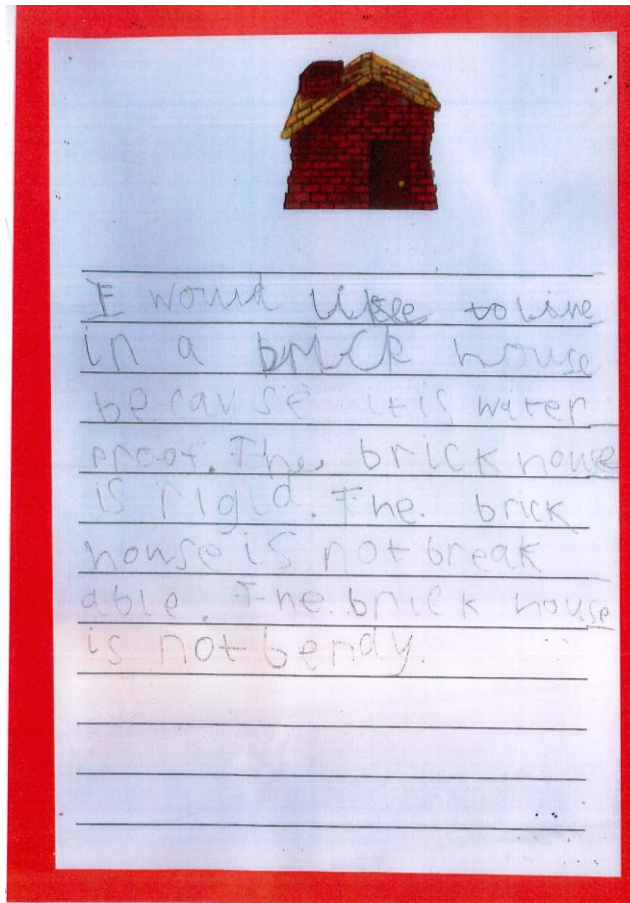 I would like to live
in a brick house
because it is water
proof. The brick house
is rigid. The. brick
house is not break
able. The brick house
is not bendy.